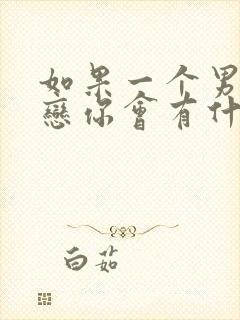 如果一个男
戀你會有什
白茹